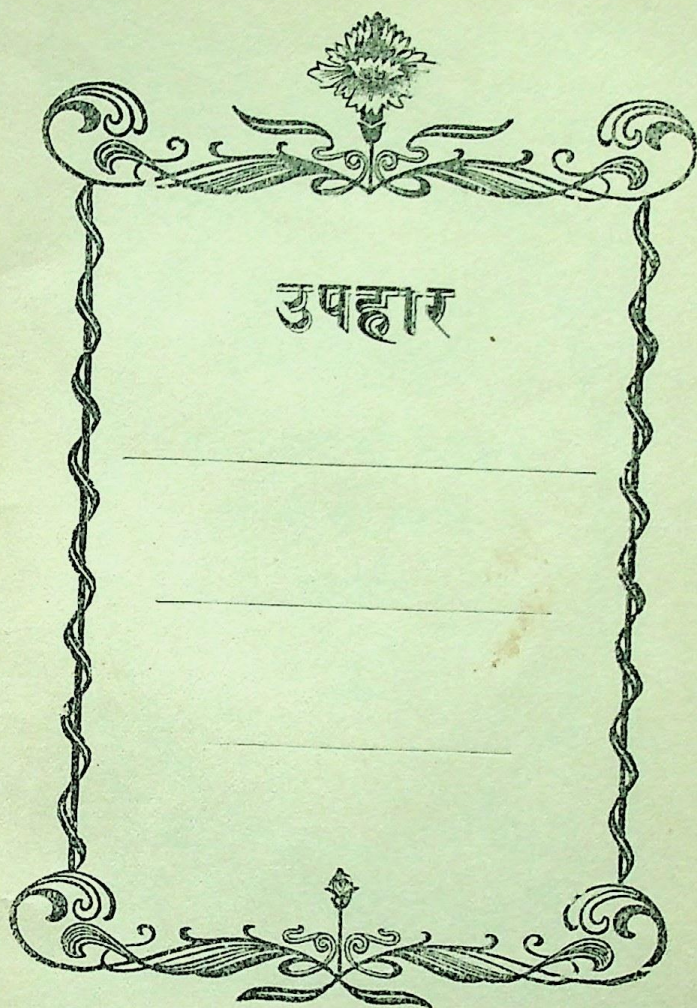 उपहार